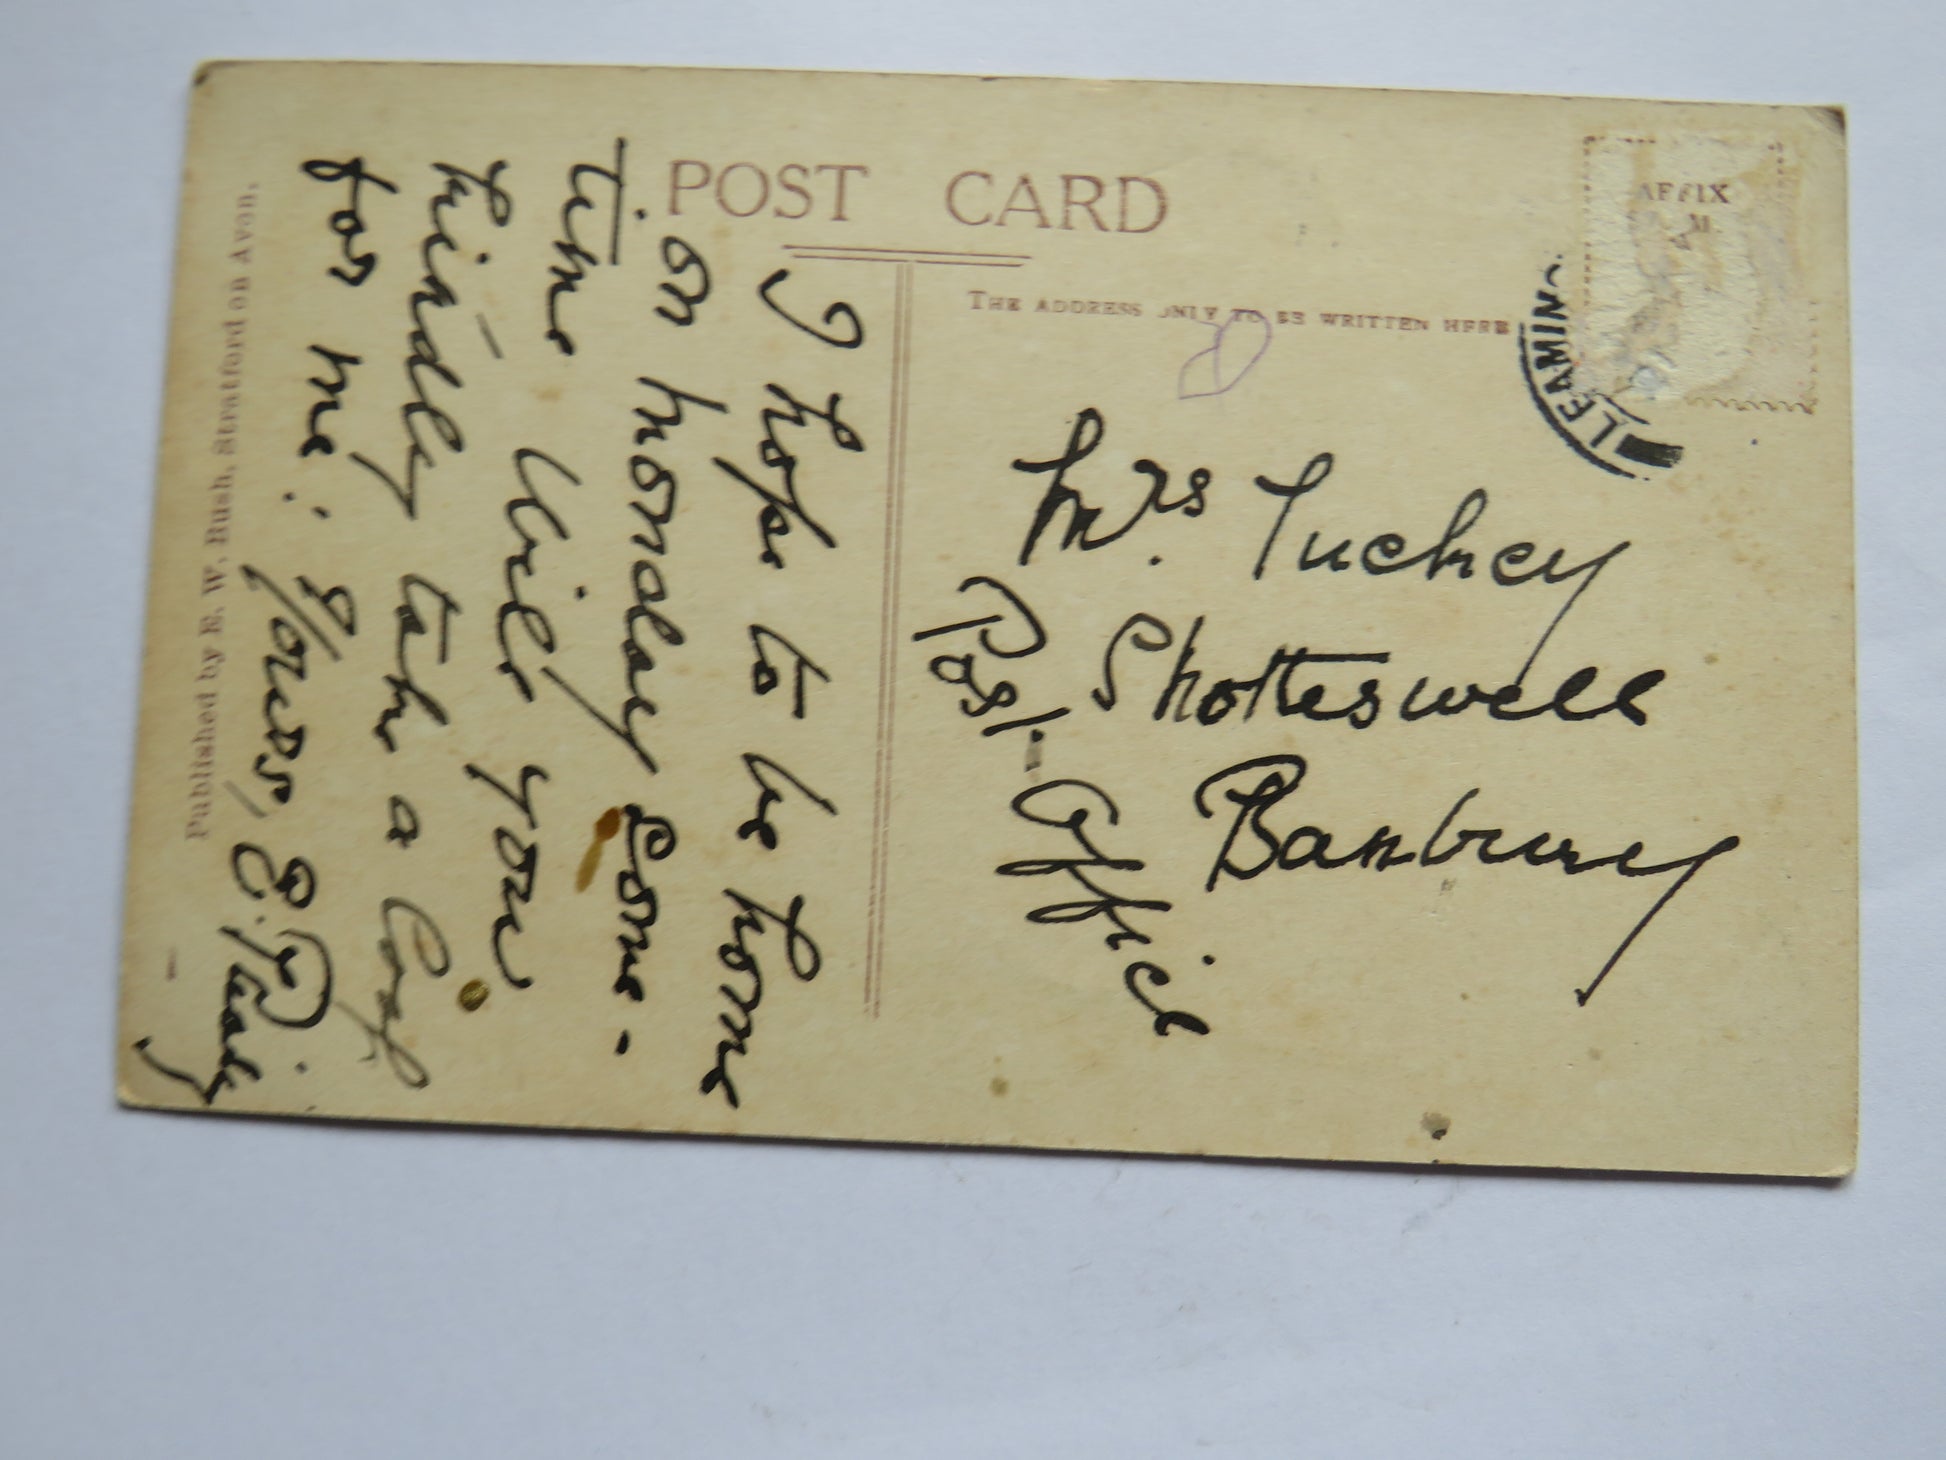 POST CARD
THE ADDRESS ONLY TO BE WRITTEN HERE
AFFIX
LEAMIN
Mrs Tuckey
Shotteswell
Banbury
Post Office
I hope to be home
on Monday some-
time Will you
kindly take a loaf
for me. Yours, E.
Published by E. W. Bush, Stratford on Avon.